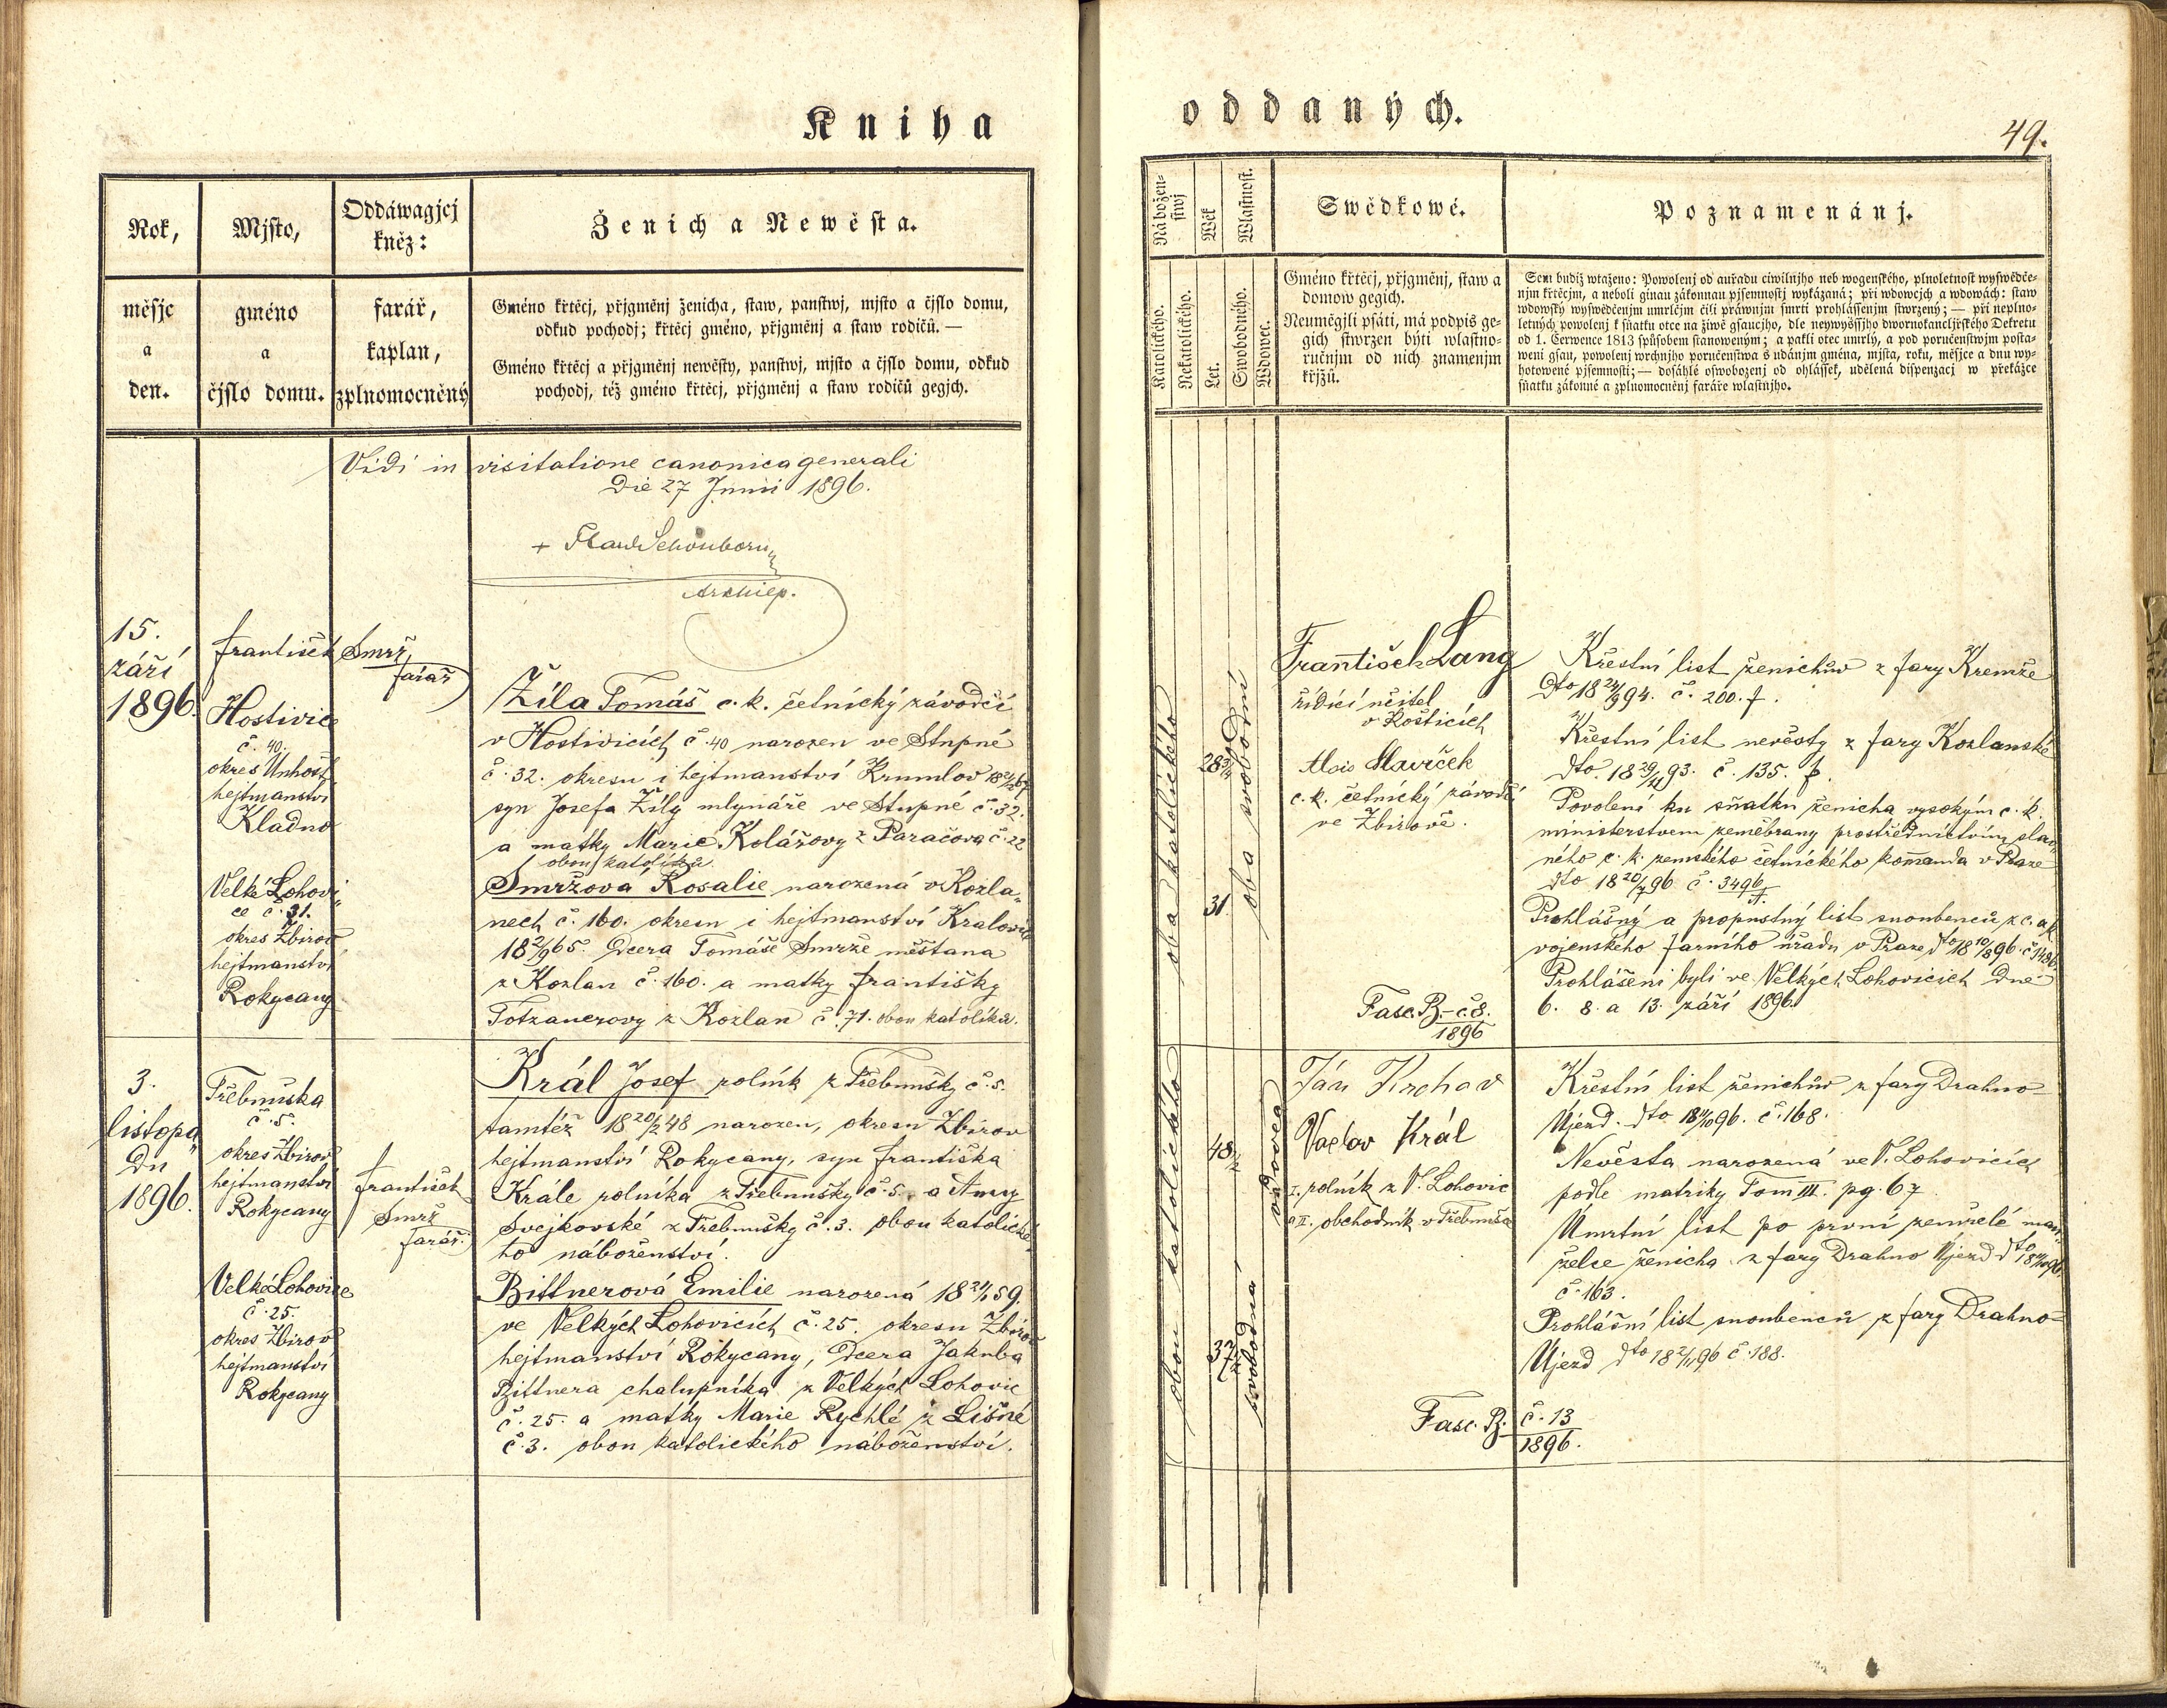 Kniha
Rok,
měsjc
a
den.
Mjsto,
gméno
a
čjslo domu.
Oddáwagjcj
kněz:
farář,
kaplan,
zplnomocněný
Ženich a Newěsta.
Gméno křtěcj, přjgměnj ženicha, staw, panstwj, mjsto a čjslo domu,
odkud pochodj; křtěcj gméno, přjgměnj a staw rodičů. —
Gméno křtěcj a přjgměnj newěsty, panstwj, mjsto a čjslo domu, odkud
pochodj, též gméno křtěcj, přjgměnj a staw rodičů gegjch.
Vidi in visitatione canonica generali
Die 27 Junii 1896.
+ Schönborn
Archiep.
15.
září
1896.
František Smrž
farář
Hostivice
č. 40.
okres Unhošť
hejtmanství
Kladno
Velké Lohovi„
ce č. 31.
okres Zbirov
hejtmanství
Rokycany
Žíla Tomáš c. k. četnický závodčí
v Hostivicích č. 40 narozen ve Stupné
č. 32. okresu i hejtmanství Krumlov
syn Josefa Žíly mlynáře ve Stupné č. 32.
a matky Marie Kolářovy z Paračova č. 22
obou katolíků.
Smržova Rosalie narozená v Kozla„
nech č. 160. okresu i hejtmanství Kralovic
18 2/9 65. Dcera Tomáše Smrže měštana
z Kozlan č. 160. a matky Františky
Totzauerovy z Kozlan č. 71. obou katolíků.
3.
listopa„
du
1896.
Třebnuška
č. 5.
okres Zbirov
hejtmanství
Rokycany
František
Smrž
farář.
Velké Lohovice
č. 25.
okres Zbirov
hejtmanství
Rokycany
Král Josef rolník z Třebnušky č. 5.
tamtéž 18 20/2 48 narozen, okresu Zbirov
hejtmanství Rokycany, syn Františka
Krále rolníka z Třebnušky č. 5. a Anny
Svejkovské z Třebnušky č. 3. obou katolické„
ho náboženství.
Bittnerová Emilie narozená 18 21/1 59.
ve Velkých Lohovicích č. 25. okresu Zbirov
hejtmanství Rokycany, Dcera Jakuba
Bittnera chalupníka z Velkých Lohovic
č. 25. a matky Marie Rychlé z Lišné
č. 3. obou katolického náboženství.
oddaných.
49.
Náboženstwj
Wěk
Wlastnost.
Katolického.
Nekatolického.
Let.
Swobodného.
Wdowec.
Swědkowé.
Gméno křtěcj, přjgměnj, staw a
domow gegich.
Neuměgjli psáti, má podpis ge-
gich stwrzen býti wlastno-
ručnjm od nich znamenjm
křjžů.
Poznamenánj.
Sem budiž wtaženo: Powolenj od auřadu ciwilnjho neb wogenského, plnoletnost wyswědče-
njm křtěcjm, a neboli ginau zákonnau pjsemnostj wykázaná; při wdowcjch a wdowách: staw
wdowský wyswědčenjm umrlčjm čili práwnjm smrti prohlássenjm stwrzený; — při neplno-
letných powolenj k sňatku otce na žiwě gsaucjho, dle neywyššjho dwornokancljřského Dekretu
od 1. Července 1813 spůsobem stanoweným; a pakli otec umrlý, a pod poručenstwjm posta-
weni gsau, powolenj wrchnjho poručenstwa s udánjm gména, mjsta, roku, měsjce a dnu wy-
hotowené pjsemnosti; — dosáhlé oswobozenj od ohlássek, udělená dispenzacj w překážce
sňatku zákonné a zplnomocněnj faráře wlastnjho.
oba katolického
28 3/4
31
oba svobodní
František Lang
řídící učitel
v Rošticích
Alois Havíček
c. k. četnický závodčí
ve Zbirově.
Fasc. B. – č. 8.
1896
Křestní list ženichův z fary Kremže
dto 18 24/9 94. č. 200. f.
Křestní list nevěsty z fary Kozlanské
dto. 18 29/11 93. č. 135. f.
Povolení ku sňatku ženicha vysokým c. k.
ministerstvem zeměbrany prostřednictvím slav„
ného c. k. zemského četnického komanda v Praze
dto 18 20/7 96 č. 3496
Prohlášný a propustný list snoubenců z c. a k
vojenského farního úřadu v Praze dto 18 10/8 96. č 1486
Prohlášeni byli ve Velkých Lohovicích dne
6. 8. a 13. září 1896.
obou katolického
48 1/2
37
vdovec
svobodná
Ján Kochav
Vaclav Král
I. rolník z V. Lohovic
a II. obchodník v Třebnušce
Fasc. B. č. 13
1896.
Křestní list ženichův z fary Drahno=
Ujezd. dto 18 11/10 96. č. 168.
Nevěsta narozená ve V. Lohovicích
podle matriky Tom III. pg. 67
Úmrtní list po první zemřelé man„
želce ženicha z fary Drahno Ujezd dto 18 11/10 96.
č. 163.
Prohlášní list snoubenců z fary Drahno=
Ujezd dto 18 2/11 96 č. 188.